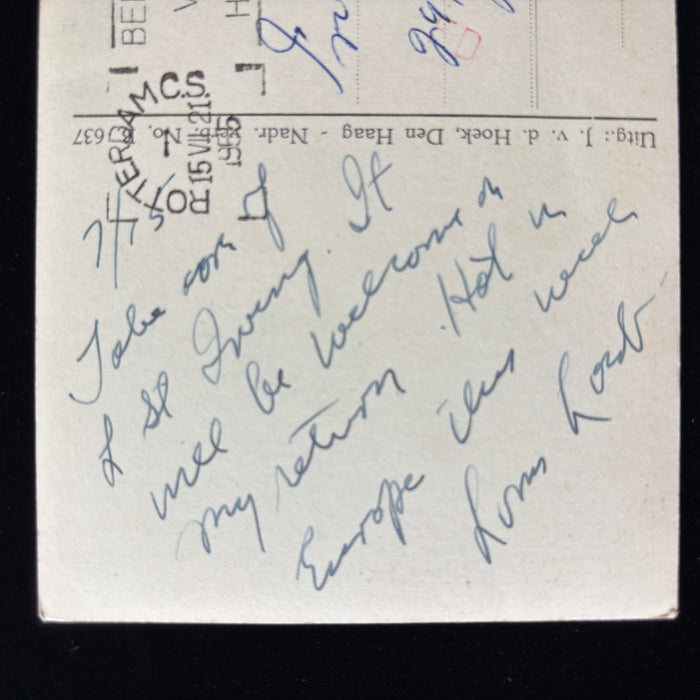 7/15
Take care of
L St Irving. It
will be welcome on
my return. Hot in
Europe this week
Louis Lord
Uitg.: J. v. d. Hoek, Den Haag - Nadr. verb. No. 637
ROTTERDAM C.S.
15 VII 21
1955